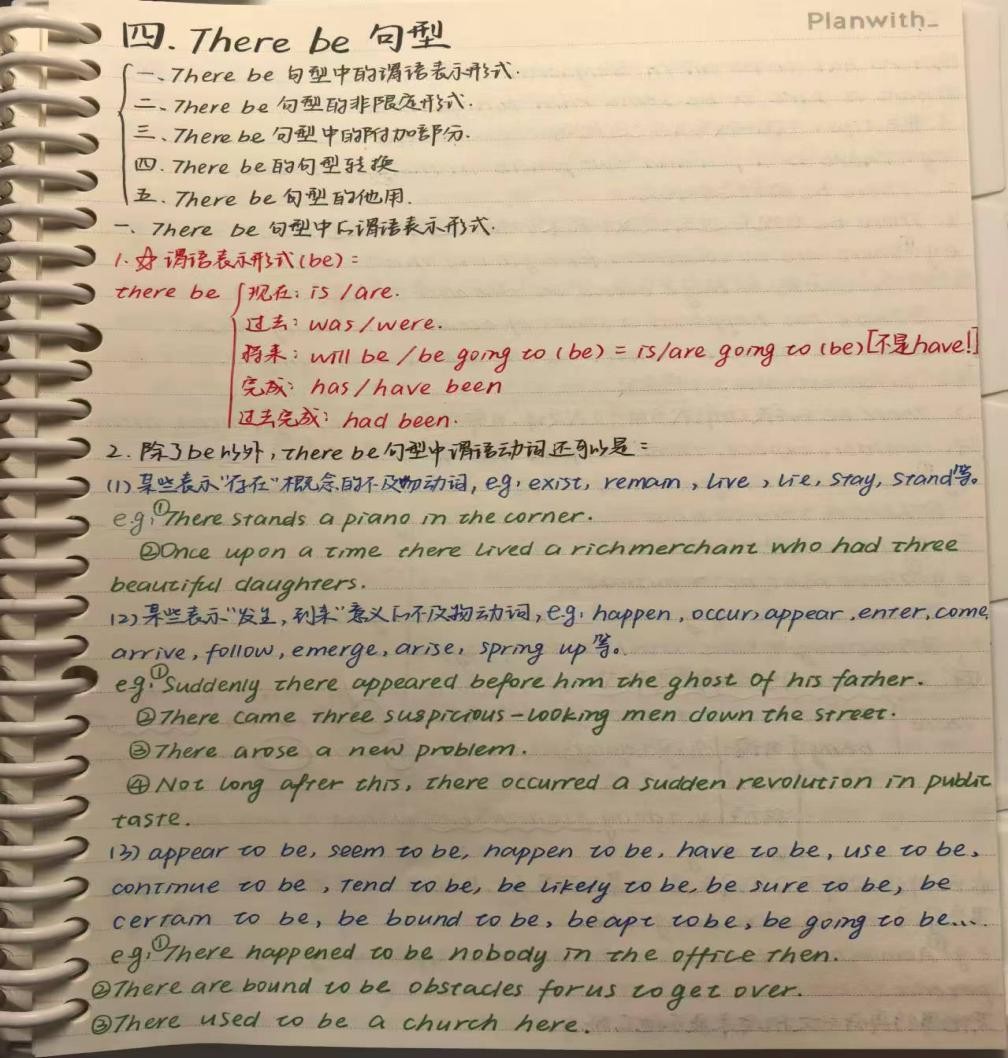 Planwith_
四. There be 句型
一、There be 句型中的谓语表示形式.
二、There be 句型的非限定形式.
三、There be 句型中的附加部分.
四. There be 的句型转换
五. There be 句型的他用.
一、There be 句型中的谓语表示形式.
1. ☆ 谓语表示形式(be):
there be 现在: is / are.
过去: was/were.
将来: will be /be going to (be) = is/are going to (be)[不是have!]
完成: has/have been
过去完成: had been.
2. 除了be以外, there be 句型中谓语动词还可以是:
(1) 某些表示"存在"概念的不及物动词, eg: exist, remain, live, lie, stay, stand等。
e.g: ①There stands a piano in the corner.
②Once upon a time there lived a richmerchant who had three
beautiful daughters.
(2) 某些表示"发生, 到来"意义的不及物动词, e.g: happen, occur, appear, enter, come,
arrive, follow, emerge, arise, spring up 等。
eg: ①Suddenly there appeared before him the ghost of his father.
②There came three suspicious-looking men down the street.
③There arose a new problem.
④Not long after this, there occurred a sudden revolution in public
taste.
(3) appear to be, seem to be, happen to be, have to be, use to be,
continue to be, tend to be, be likely to be, be sure to be, be
certain to be, be bound to be, be apt to be, be going to be...
e.g: ①There happened to be nobody in the office then.
②There are bound to be obstacles for us to get over.
③There used to be a church here.